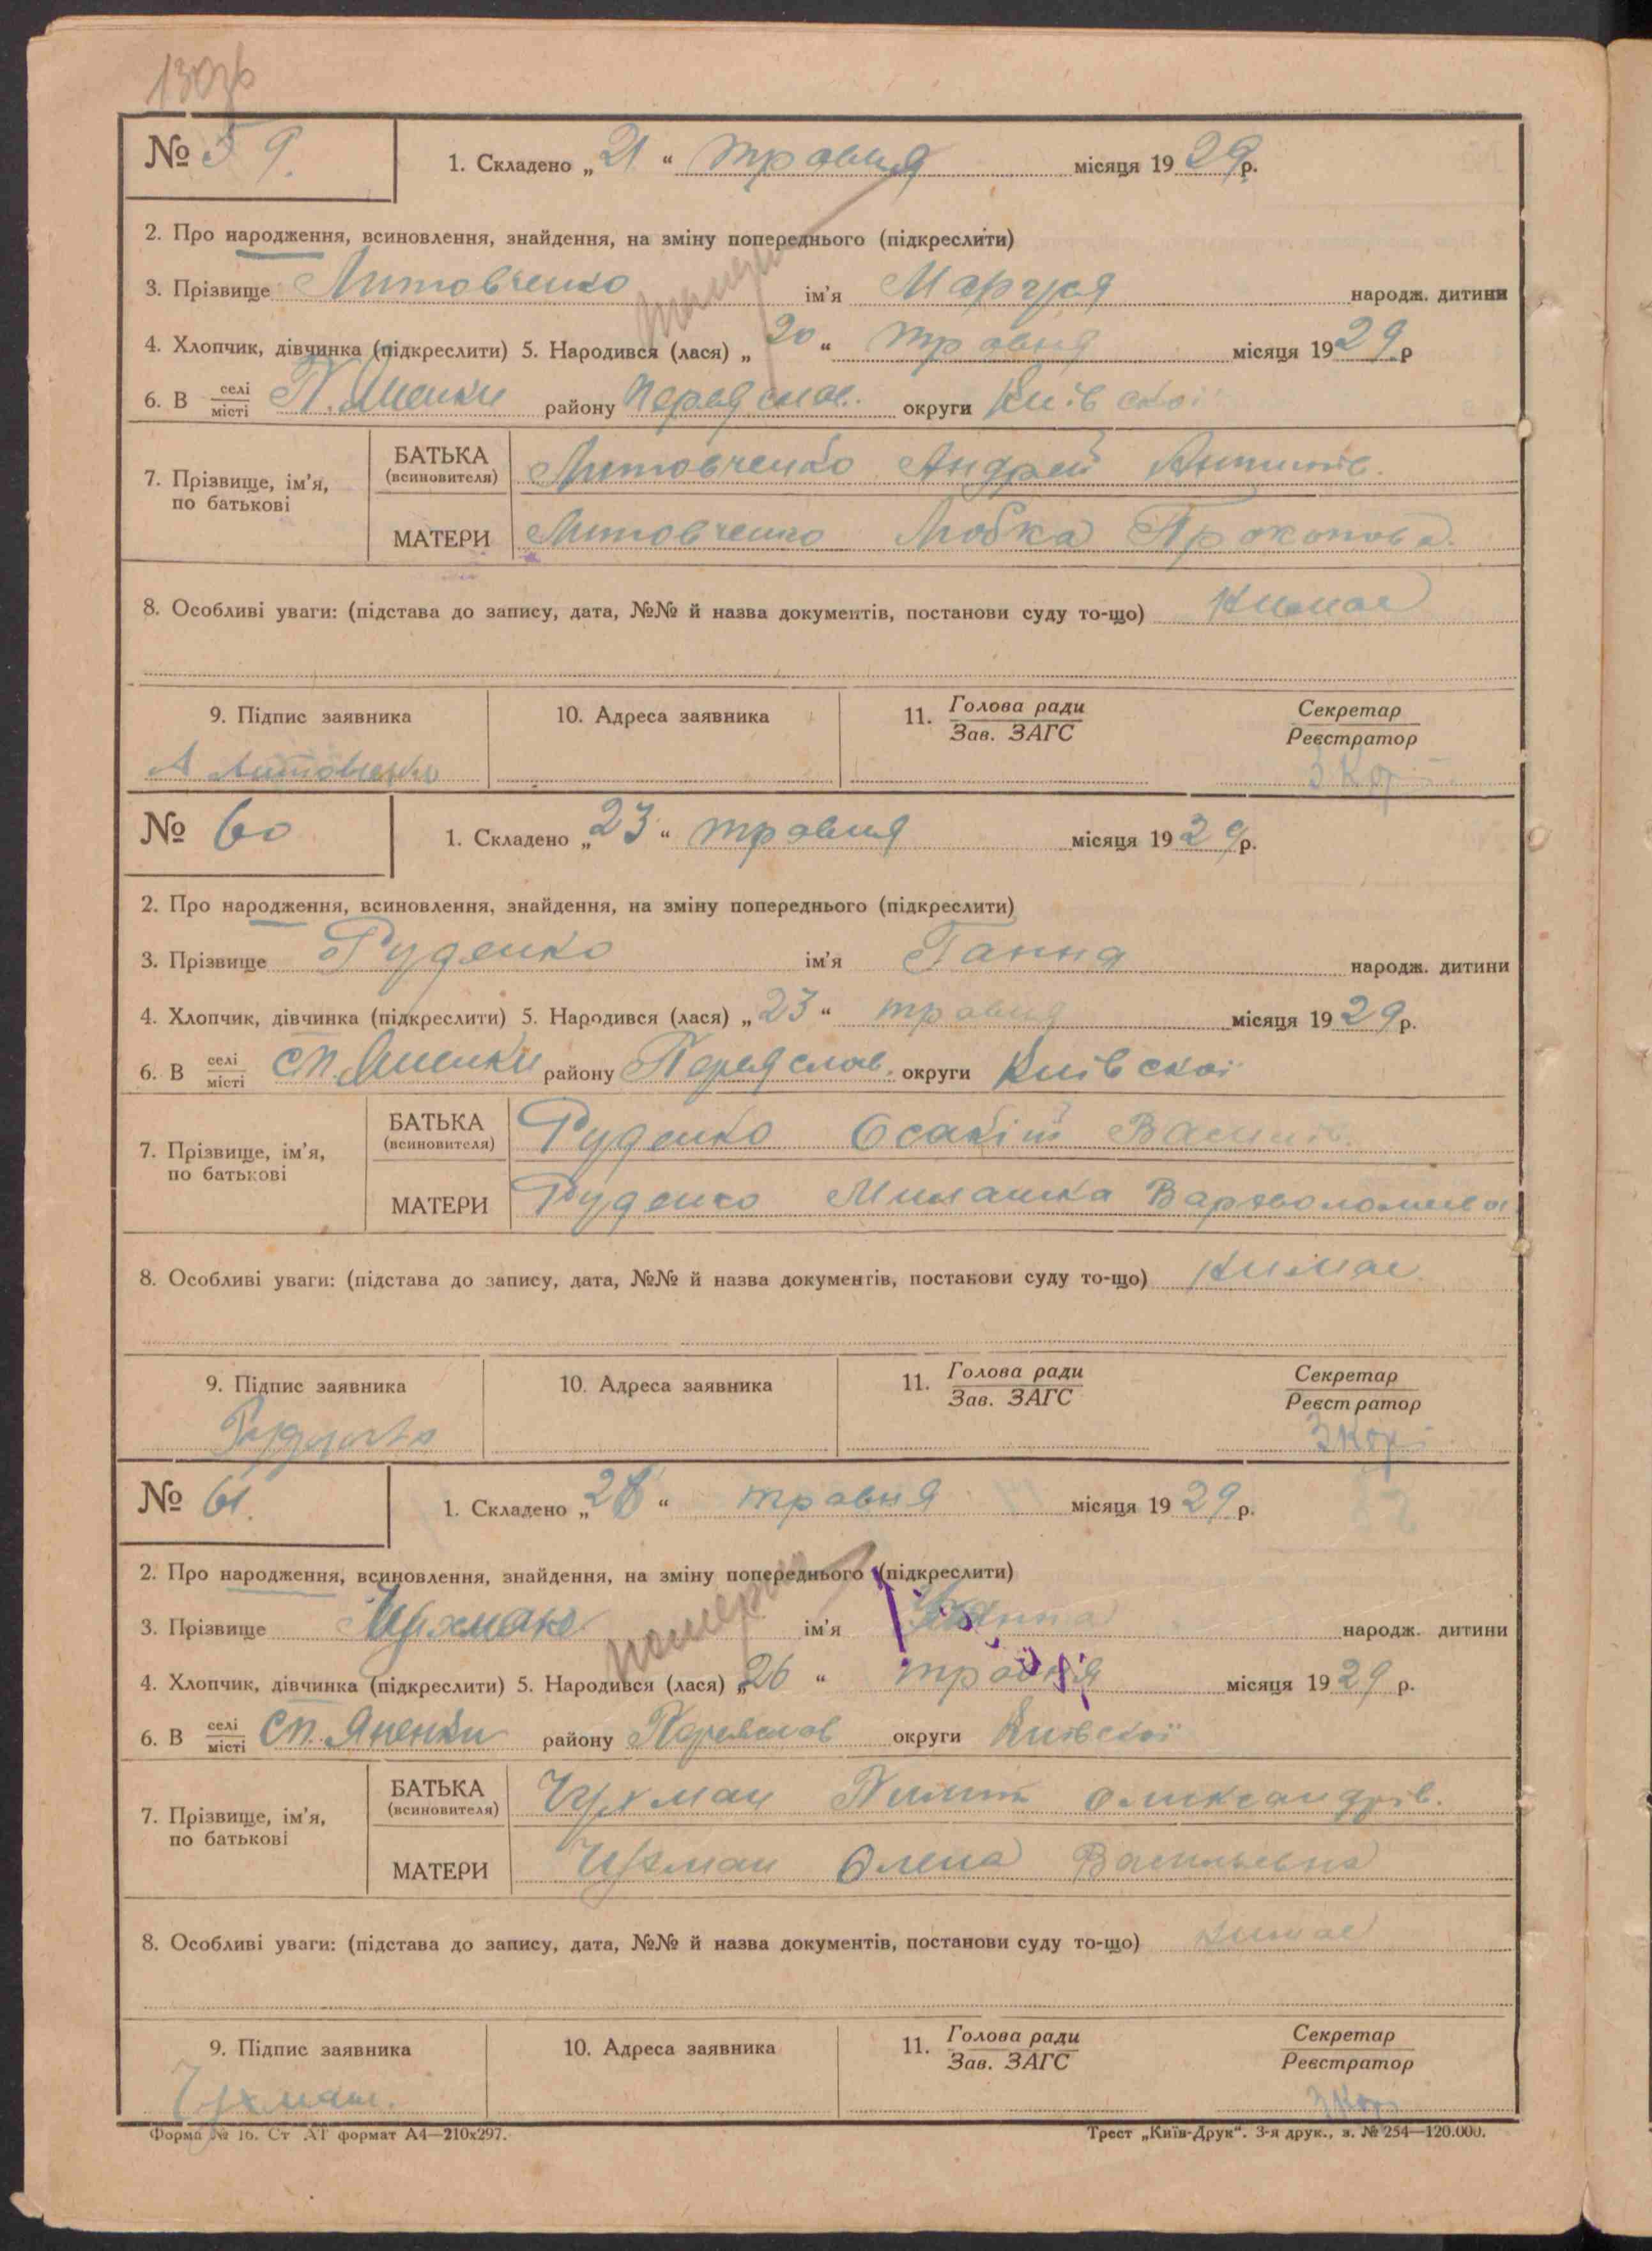 130зв
№ 59.
1. Складено „21“ травня місяця 1929р.
2. Про народження, всиновлення, знайдення, на зміну попереднього (підкреслити)
3. Прізвище Литовченко ім'я Маруся народж. дитини
4. Хлопчик, дівчинка (підкреслити) 5. Народився (лася) „20“ травня місяця 1929 р
6. В селі місті П. району Переяслав. округи Київської
7. Прізвище, ім'я, по батькові
БАТЬКА (всиновителя) Литовченко Андрей
МАТЕРИ Литовченко Любка Прокопова.
8. Особливі уваги: (підстава до запису, дата, №№ й назва документів, постанови суду то-що) Нимає
9. Підпис заявника 10. Адреса заявника 11. Голова ради Зав. ЗАГС Секретар Реєстратор
А Литовченко
№ 60
1. Складено „23“ травня місяця 1929р.
2. Про народження, всиновлення, знайдення, на зміну попереднього (підкреслити)
3. Прізвище Руденко ім'я Ганна народж. дитини
4. Хлопчик, дівчинка (підкреслити) 5. Народився (лася) „23“ травня місяця 1929 р.
6. В селі місті СП. Яненки району Переяслав. округи Київської
7. Прізвище, ім'я, по батькові
БАТЬКА (всиновителя) Руденко Василів.
МАТЕРИ Руденко Милашка
8. Особливі уваги: (підстава до запису, дата, №№ й назва документів, постанови суду то-що) Нимає
9. Підпис заявника 10. Адреса заявника 11. Голова ради Зав. ЗАГС Секретар Реєстратор
№ 61.
1. Складено „28“ травня місяця 1929 р.
2. Про народження, всиновлення, знайдення, на зміну попереднього (підкреслити)
3. Прізвище ім'я народж. дитини
4. Хлопчик, дівчинка (підкреслити) 5. Народився (лася) „26“ травня місяця 1929 р.
6. В селі місті СП. Яненки району Переяслав округи Київської
7. Прізвище, ім'я, по батькові
БАТЬКА (всиновителя) Чухман Пилип Олександрів.
МАТЕРИ Чухман Олена Васильевна
8. Особливі уваги: (підстава до запису, дата, №№ й назва документів, постанови суду то-що) Нимає
9. Підпис заявника 10. Адреса заявника 11. Голова ради Зав. ЗАГС Секретар Реєстратор
Чухман.
Форма № 16. Ст АТ формат А4—210х297.
Трест „Київ-Друк“. 3-я друк., з. № 254—120.000.